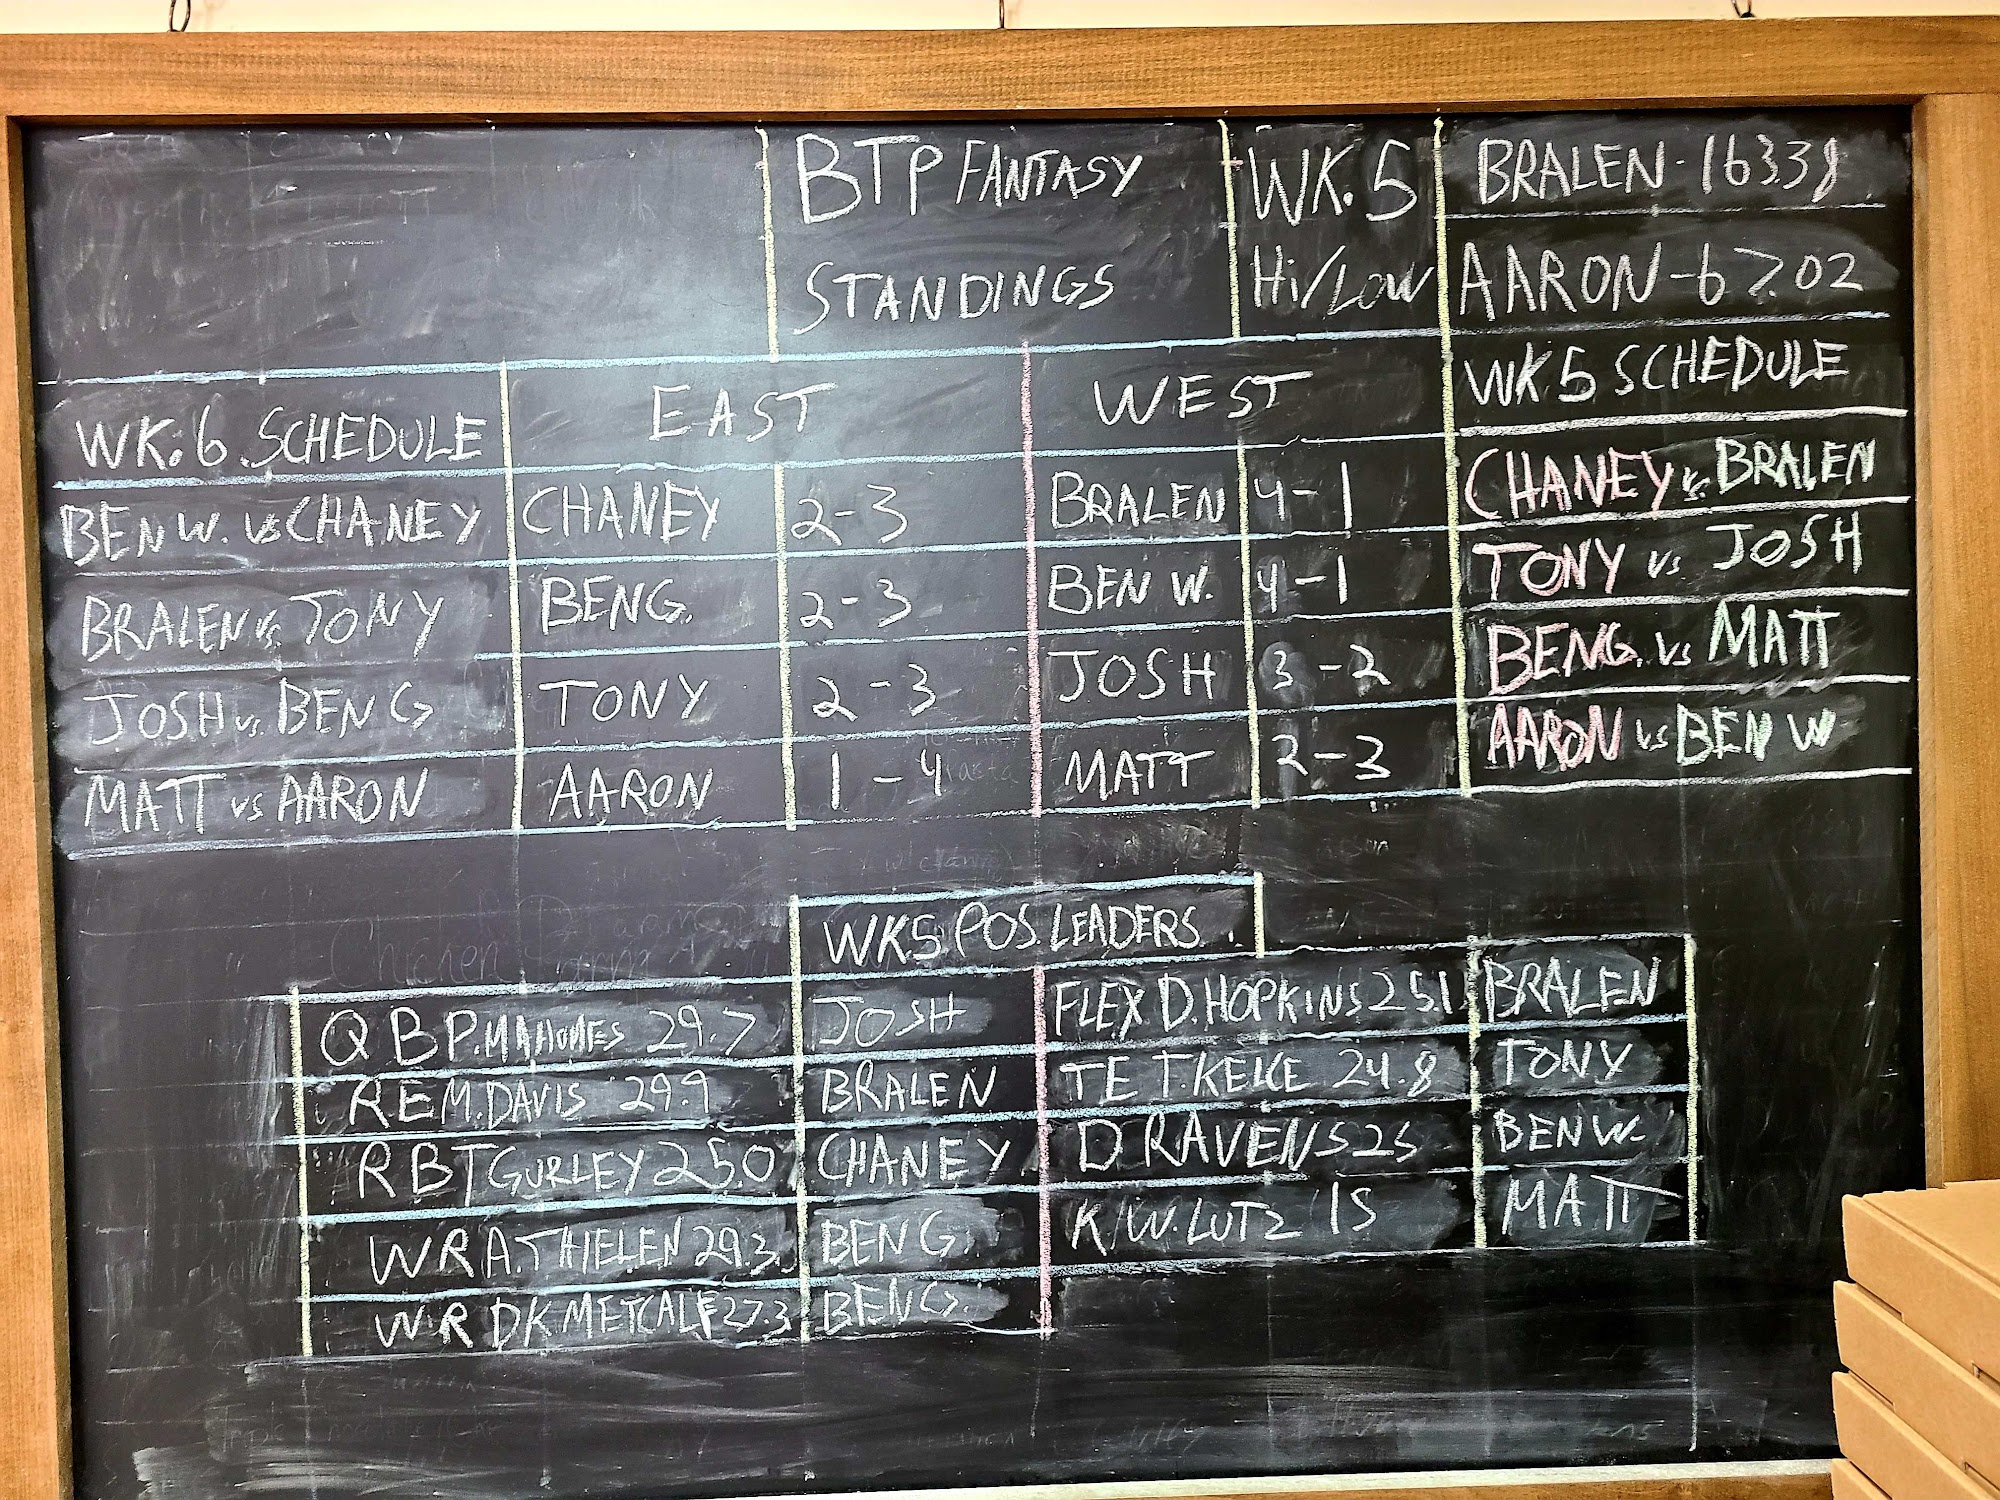 BTP FANTASY
STANDINGS
WK. 5
Hi/LOW
BRALEN - 163.38
AARON - 67.02
WK. 6 SCHEDULE
BEN W. VS CHANEY
BRALEN vs. TONY
JOSH vs. BEN G
MATT vs AARON
EAST
CHANEY 2-3
BEN G. 2-3
TONY 2-3
AARON 1-4
WEST
BRALEN 4-1
BEN W. 4-1
JOSH 3-2
MATT 2-3
WK 5 SCHEDULE
CHANEY vs. BRALEN
TONY vs JOSH
BEN G. vs MATT
AARON vs BEN W
WK5 POS. LEADERS
QB P.MAHOMES 29.7 JOSH
RB M.DAVIS 29.9 BRALEN
RB T GURLEY 25.0 CHANEY
WR A.THIELEN 29.3 BEN G
WR DK METCALF 27.3 BEN G.
FLEX D.HOPKINS 25.1 BRALEN
TE T.KELCE 24.8 TONY
D RAVENS 25 BEN W.
K W.LUTZ 15 MATT